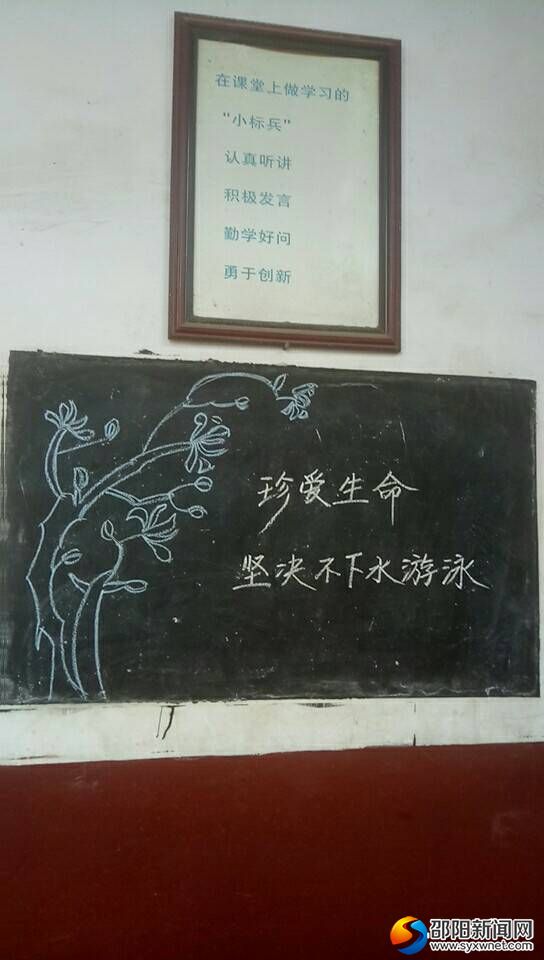 在课堂上做学习的
"小标兵"
认真听讲
积极发言
勤学好问
勇于创新
珍爱生命
坚决不下水游泳
邵阳新闻网
www.syxwnet.com